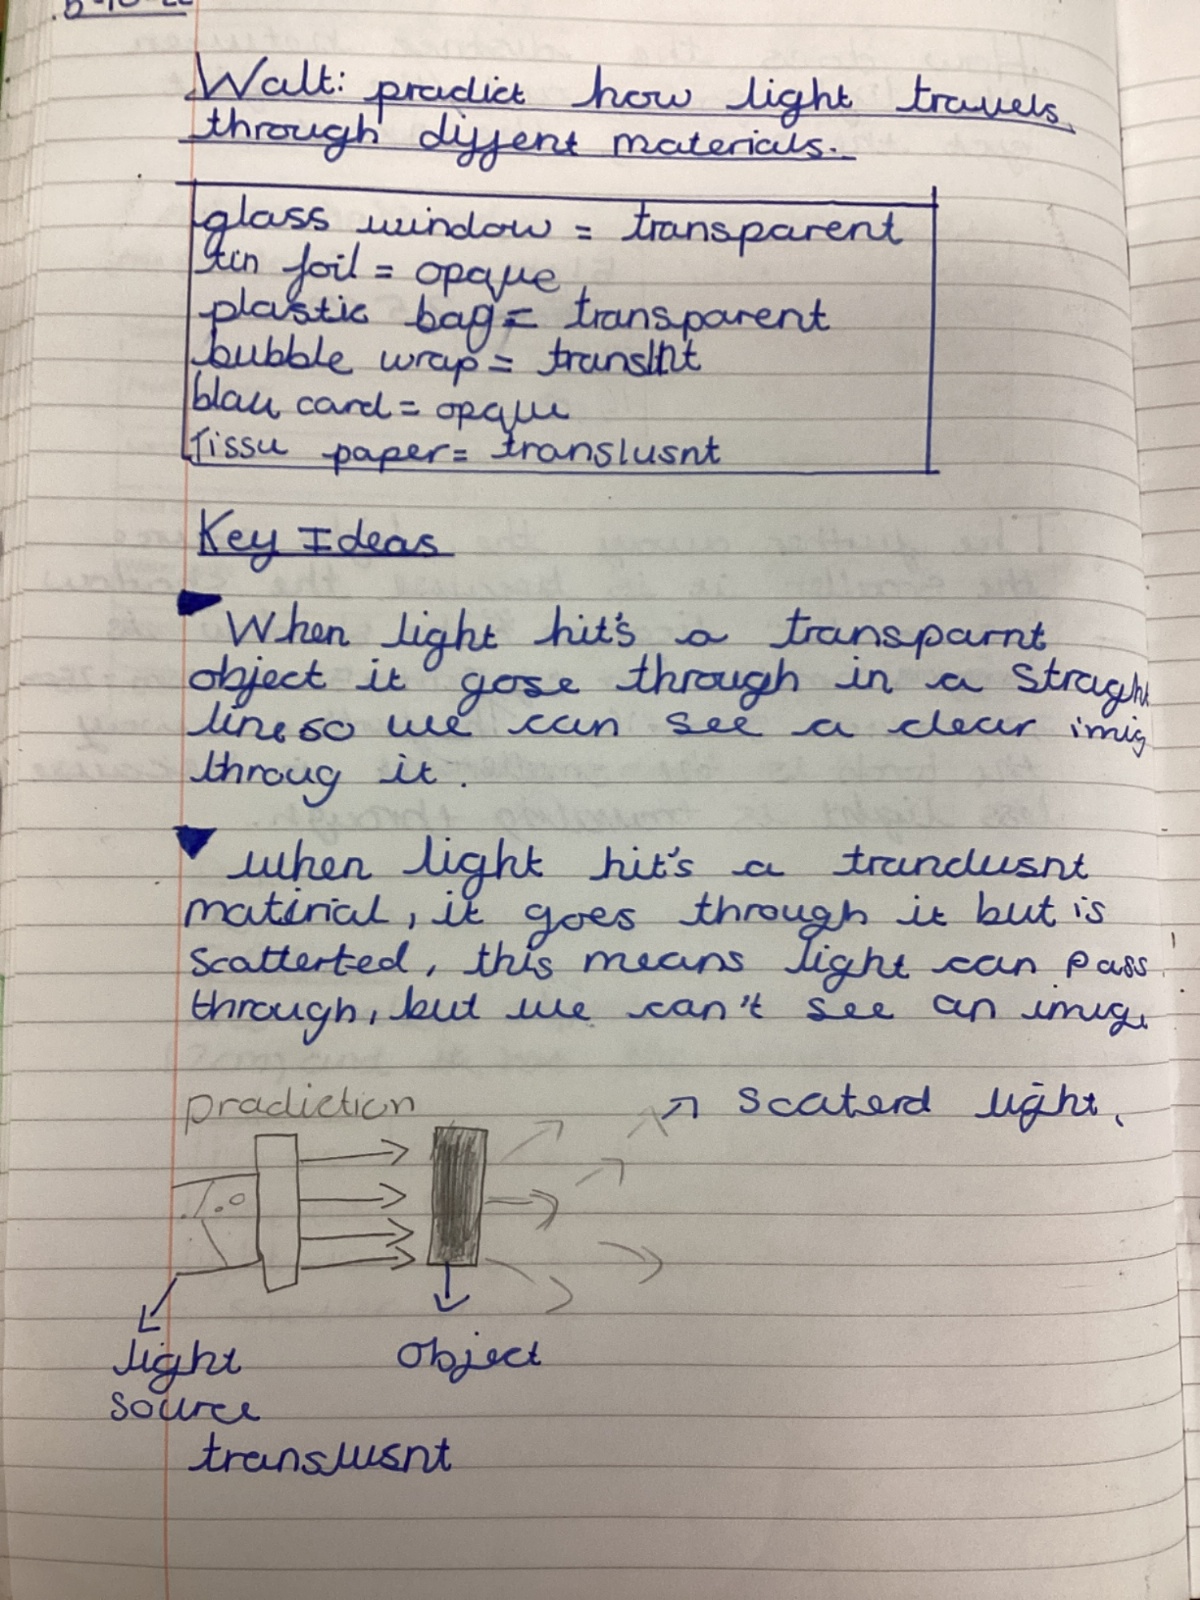 Walt: pradict how light travels
through diffent materials.
glass window = transparent
tin foil = opaque
plastic bag = transparent
bubble wrap = translnt
card = opaque
Tissu paper = translusnt
Key Ideas
When light hit's a transparnt
object it gose through in a straght
line so we can see a clear imig
throug it.
when light hit's a tranclusnt
matirial, it goes through it but is
scatterted, this means light can pass
through, but we can't see an imig.
pradiction
scaterd light.
light
source
object
translusnt